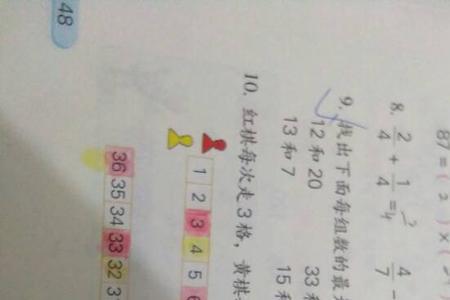 87=(2)×(
8. 2/4+1/4= 4/7-
9. 找出下面每组数的最
12和20 33
13和7 15和
10. 红棋每次走3格，黄棋
1 2 3 4 5 6
36 35 34 33 32 3
48